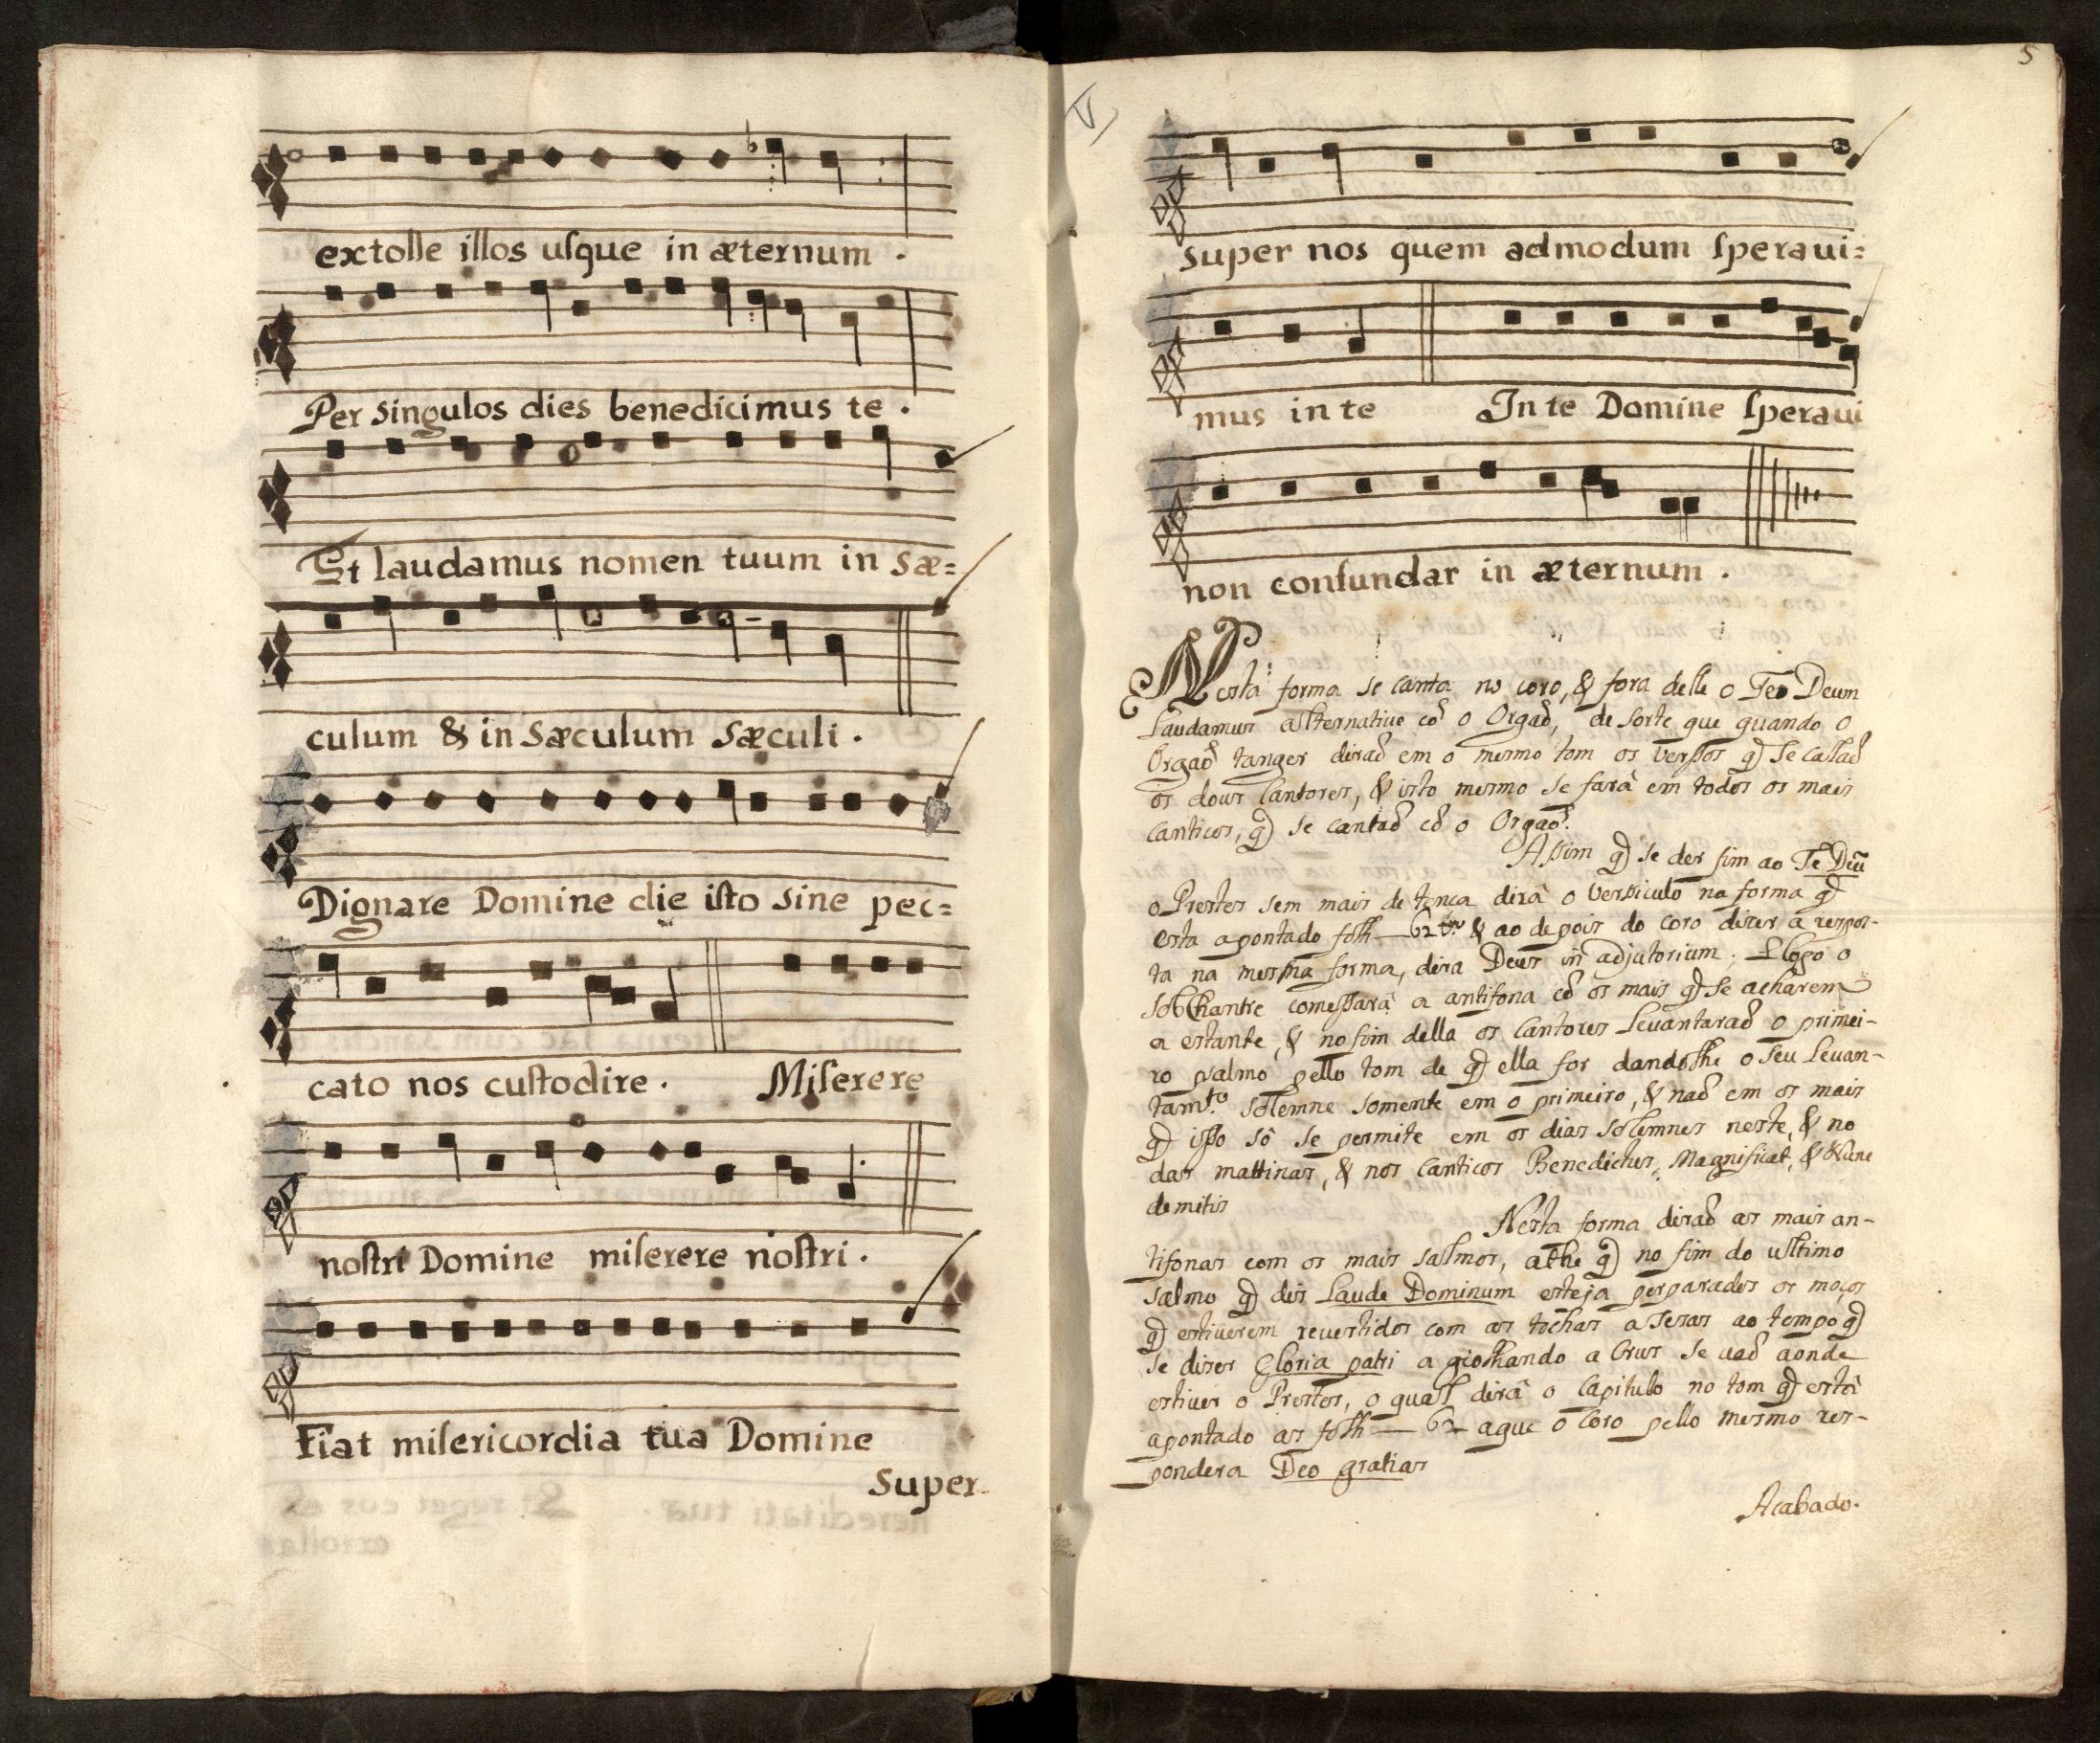 extolle illos uſque in æternum .
Per singulos dies benedicimus te .
Et laudamus nomen tuum in sæ=
culum & in sæculum sæculi .
Dignare Domine die iſto sine pec=
cato nos cuſtodire . Miſerere
noſtri Domine miſerere noſtri .
Fiat miſericordia tua Domine
Super
5
super nos quem admodum ſperaui=
mus in te In te Domine ſperaui
non confundar in æternum .
Nesta forma se canta no coro, & fora delle o Teo Deum
Laudamus alternatiue cõ o Orgaõ, de sorte que quando o
Orgaõ tanger diraõ em o mesmo tom os verſsos q̃ se callaõ
os dous Cantores, & isto mesmo se farâ em todos os mais
Canticos, q̃ se cantaõ cõ o Orgaõ.
Aſsim q̃ se der fim ao Te Deũ
o Prestes sem mais detença dirâ o versiculo na forma q̃
esta apontado folh — 62 & ao depois do coro dizer a respos-
ta na mesma forma, dira Deus in adjutorium; E logo o
sobChantre comeſsarâ a antifona cõ os mais q̃ se acharem
a estante, & no fim della os Cantores Leuantaraõ o primei-
ro psalmo pello tom de q̃ ella for dandolhe o seu Leuan-
tamto. solemne somente em o primeiro, & naõ em os mais
q̃ iſso sô se permite em os dias solemnes neste, & no
das mattinas, & nos Canticos Benedictus, Magnificat, & Nunc
demitis
Nesta forma diraõ as mais an-
tifonas com os mais salmos, athe q̃ no fim do ultimo
salmo q̃ dis Laude Dominum esteja perparados os moços
q̃ estiuerem reuestidos com as tochas asesas ao tempo q̃
se dizer Gloria patri a giolhando a Crus se uaõ aonde
estiuer o Prestes, o quall dirâ o Capitulo no tom q̃ está
apontado as folh — 62 a que o Coro pello mesmo res-
pondera Deo gratias
Acabado.